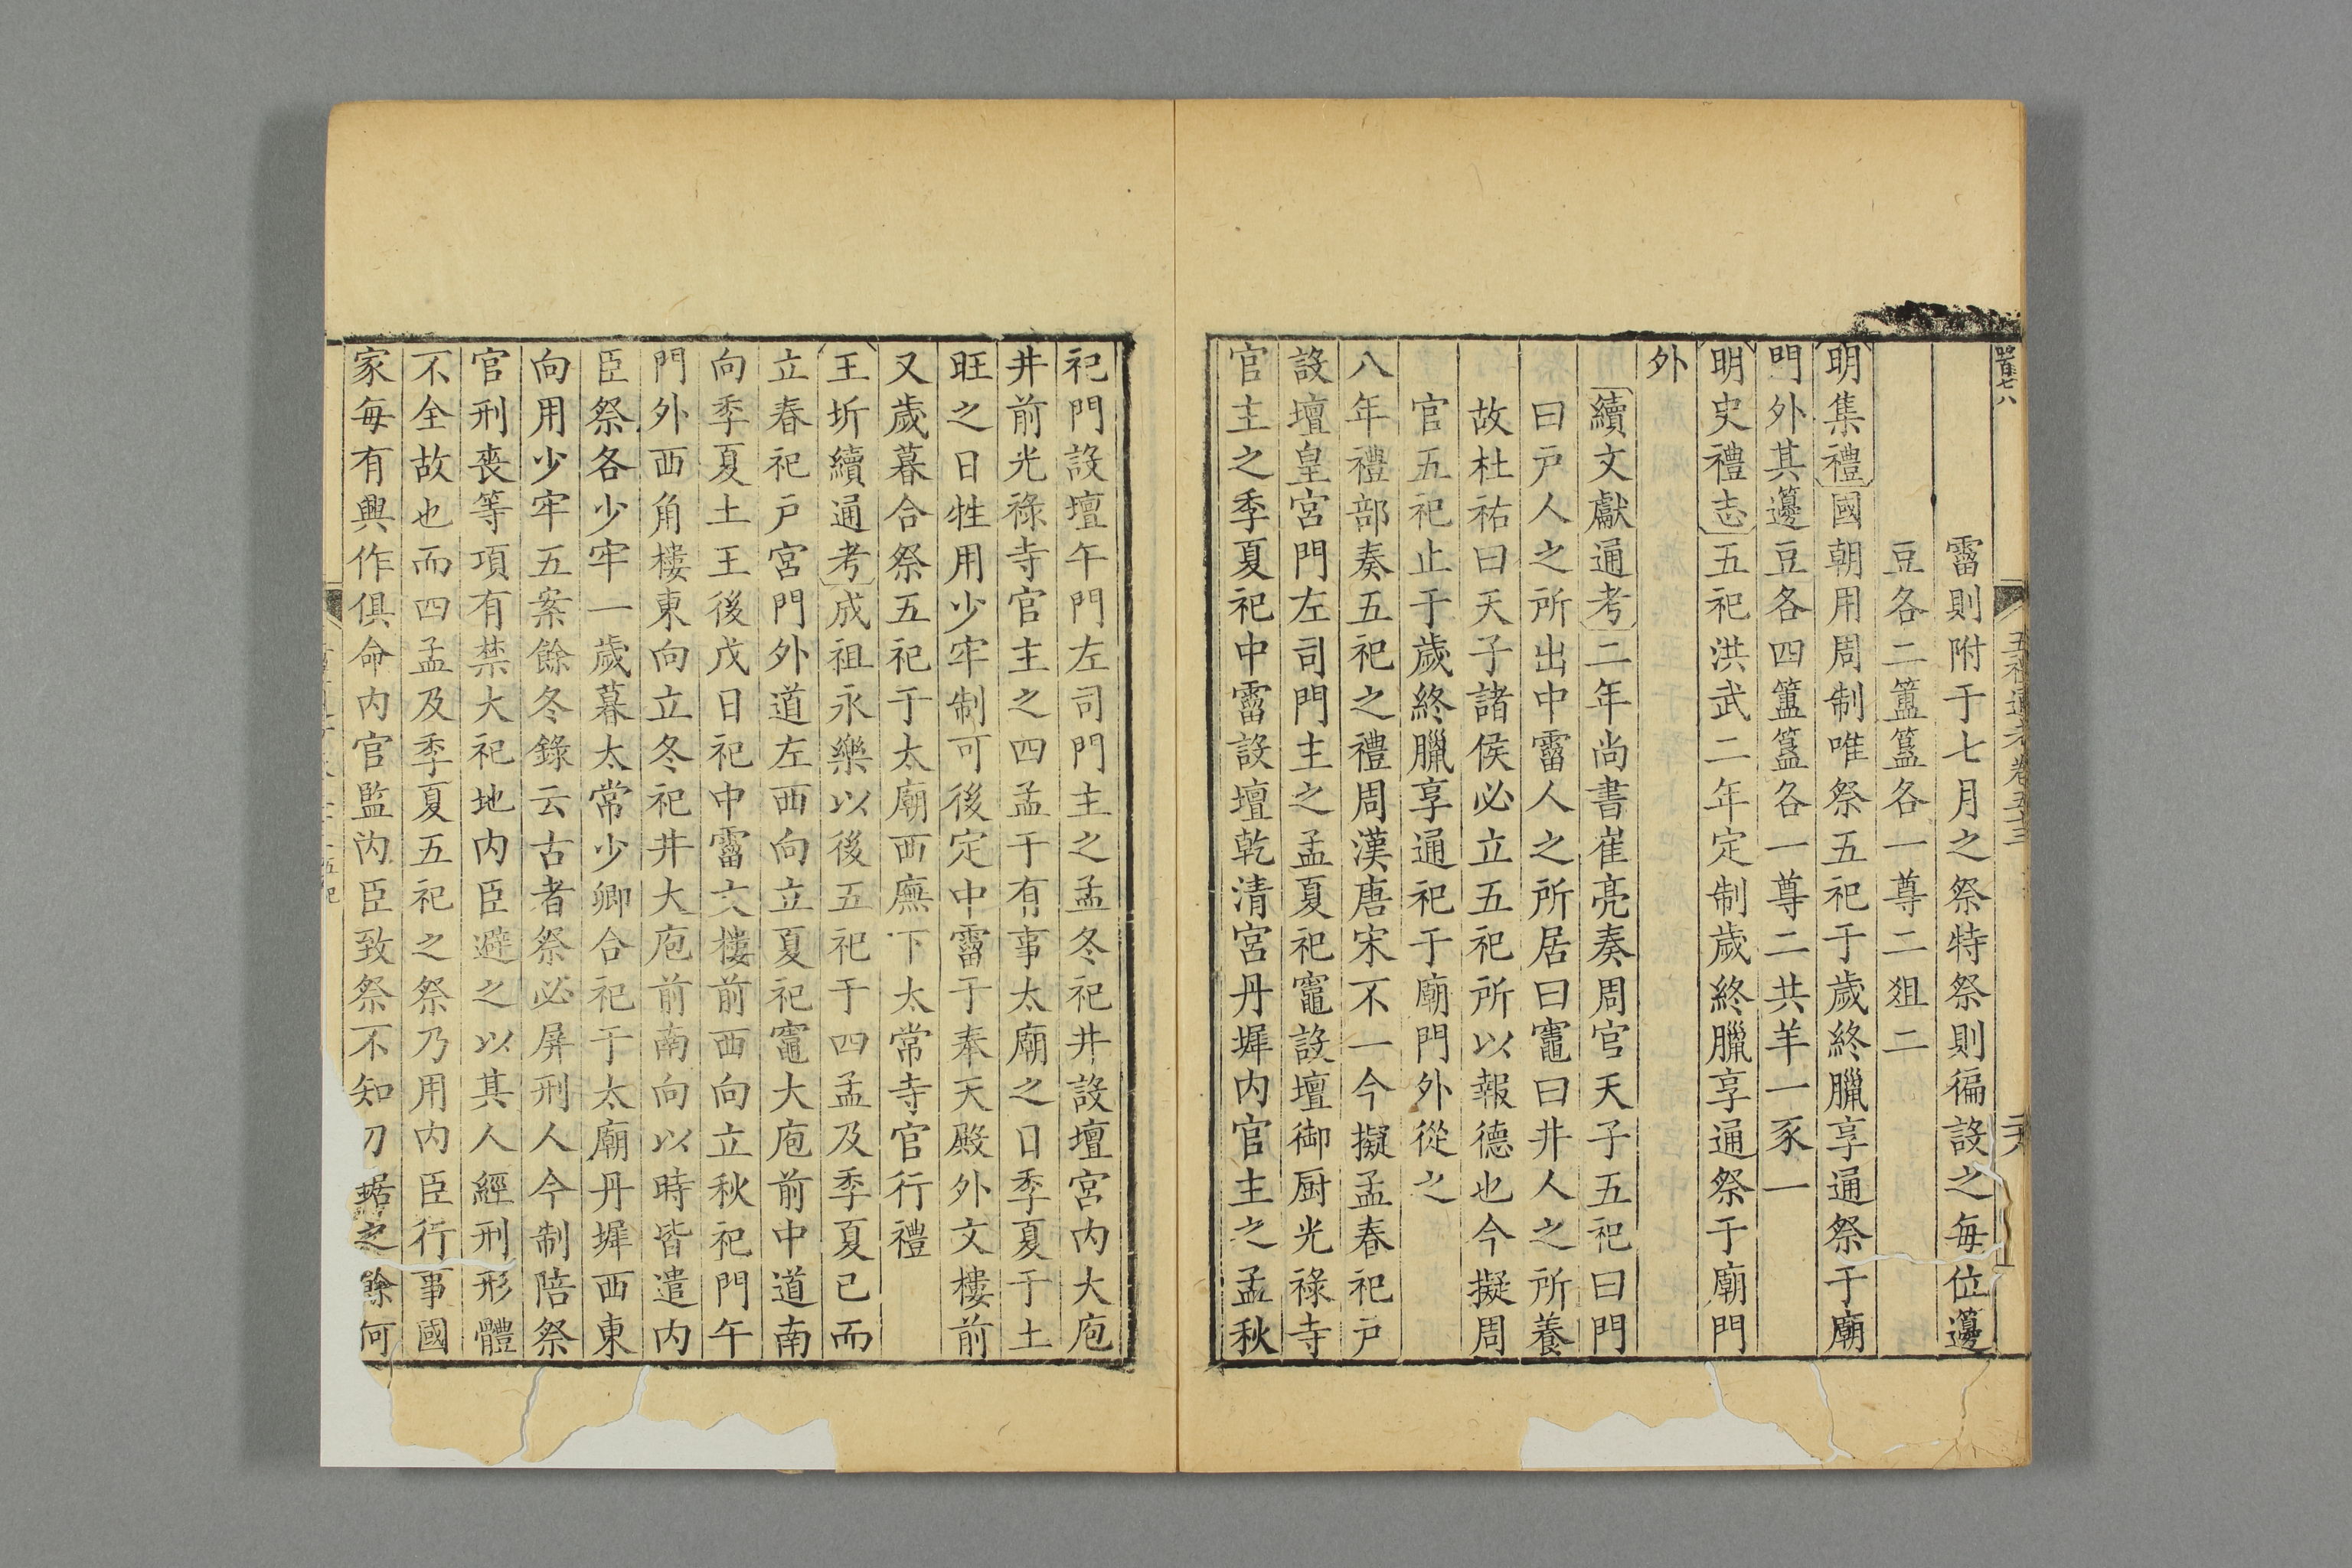 霤則附于七月之祭特祭則徧設之每位籩
豆各二簠簋各一尊二俎二
明集禮國朝用周制唯祭五祀于歲終臘享通祭于廟
門外其籩豆各四簠簋各一尊二共羊一豕一
明史禮志五祀洪武二年定制歲終臘享通祭于廟門
外
續文獻通考二年尚書崔亮奏周官天子五祀曰門
曰戸人之所出中霤人之所居曰竈曰井人之所養
故杜祐曰天子諸侯必立五祀所以報德也今擬周
官五祀止于歲終臘享通祀于廟門外從之
八年禮部奏五祀之禮周漢唐宋不一今擬孟春祀戸
設壇皇宮門左司門主之孟夏祀竈設壇御厨光祿寺
官主之季夏祀中霤設壇乾清宮丹墀内官主之孟秋
祀門設壇午門左司門主之孟冬祀井設壇宮内大庖
井前光祿寺官主之四孟于有事太廟之日季夏于土
旺之日牲用少牢制可後定中霤于奉天殿外文樓前
又歲暮合祭五祀于太廟西廡下太常寺官行禮
王圻續通考成祖永樂以後五祀于四孟及季夏已而
立春祀戸宮門外道左西向立夏祀竈大庖前中道南
向季夏土王後戊日祀中霤文樓前西向立秋祀門午
門外西角樓東向立冬祀井大庖前南向以時皆遣内
臣祭各少牢一歲暮太常少卿合祀于太廟丹墀西東
向用少牢五案餘冬錄云古者祭必屏刑人今制陪祭
官刑喪等項有禁大祀地内臣避之以其人經刑形體
不全故也而四孟及季夏五祀之祭乃用内臣行事國
家每有興作俱命内官監内臣致祭不知刀鋸之餘何